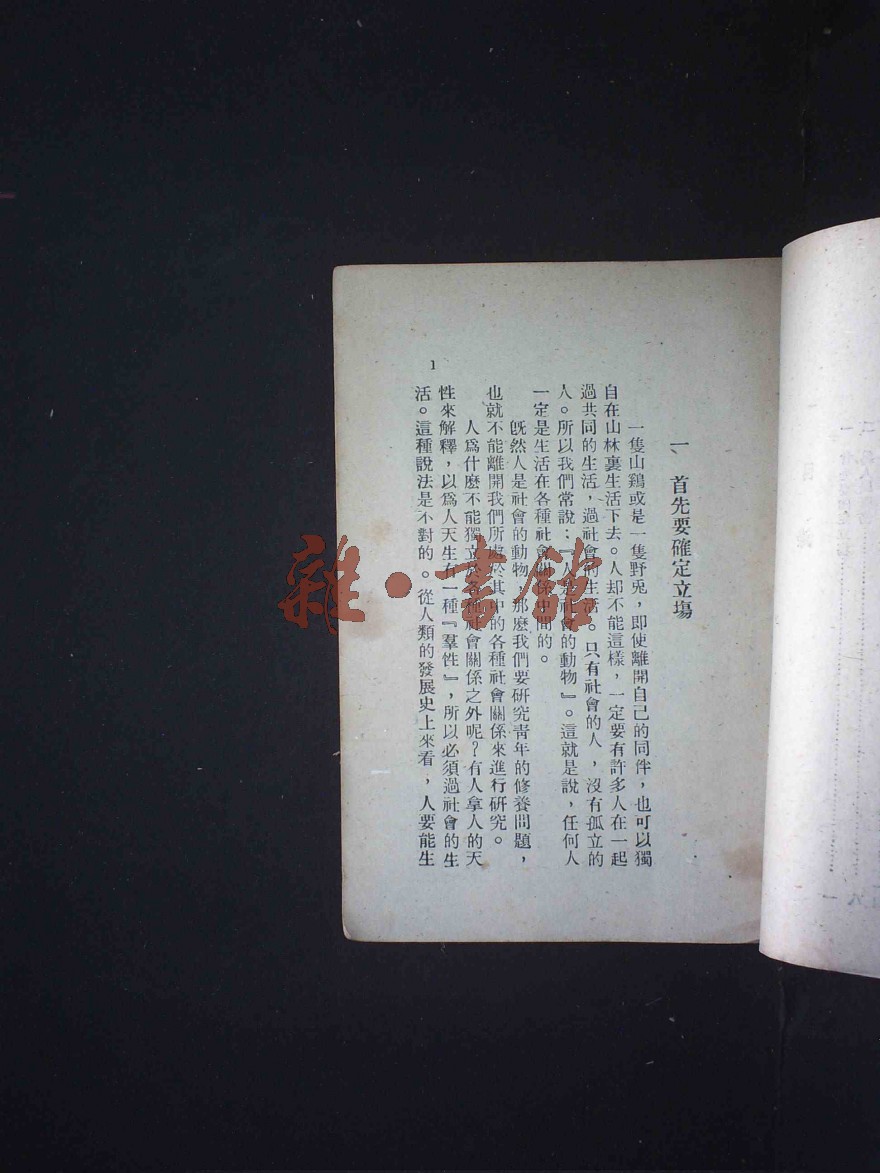 一、首先要確定立場
一隻山鷄或是一隻野兎，即使離開自己的同伴，也可以獨
自在山林裏生活下去。人却不能這樣，一定要有許多人在一起
過共同的生活，過社會的生活。只有社會的人，沒有孤立的
人。所以我們常說：『人是社會的動物』。這就是說，任何人
一定是生活在各種社會關係中間的。
旣然人是社會的動物，那麽我們要研究靑年的修養問題，
也就不能離開我們所處於其中的各種社會關係來進行研究。
人爲什麽不能獨立於各種社會關係之外呢？有人拿人的天
性來解釋，以爲人天生有一種『羣性』，所以必須過社會的生
活。這種說法是不對的。從人類的發展史上來看，人要能生
1
雜·書館